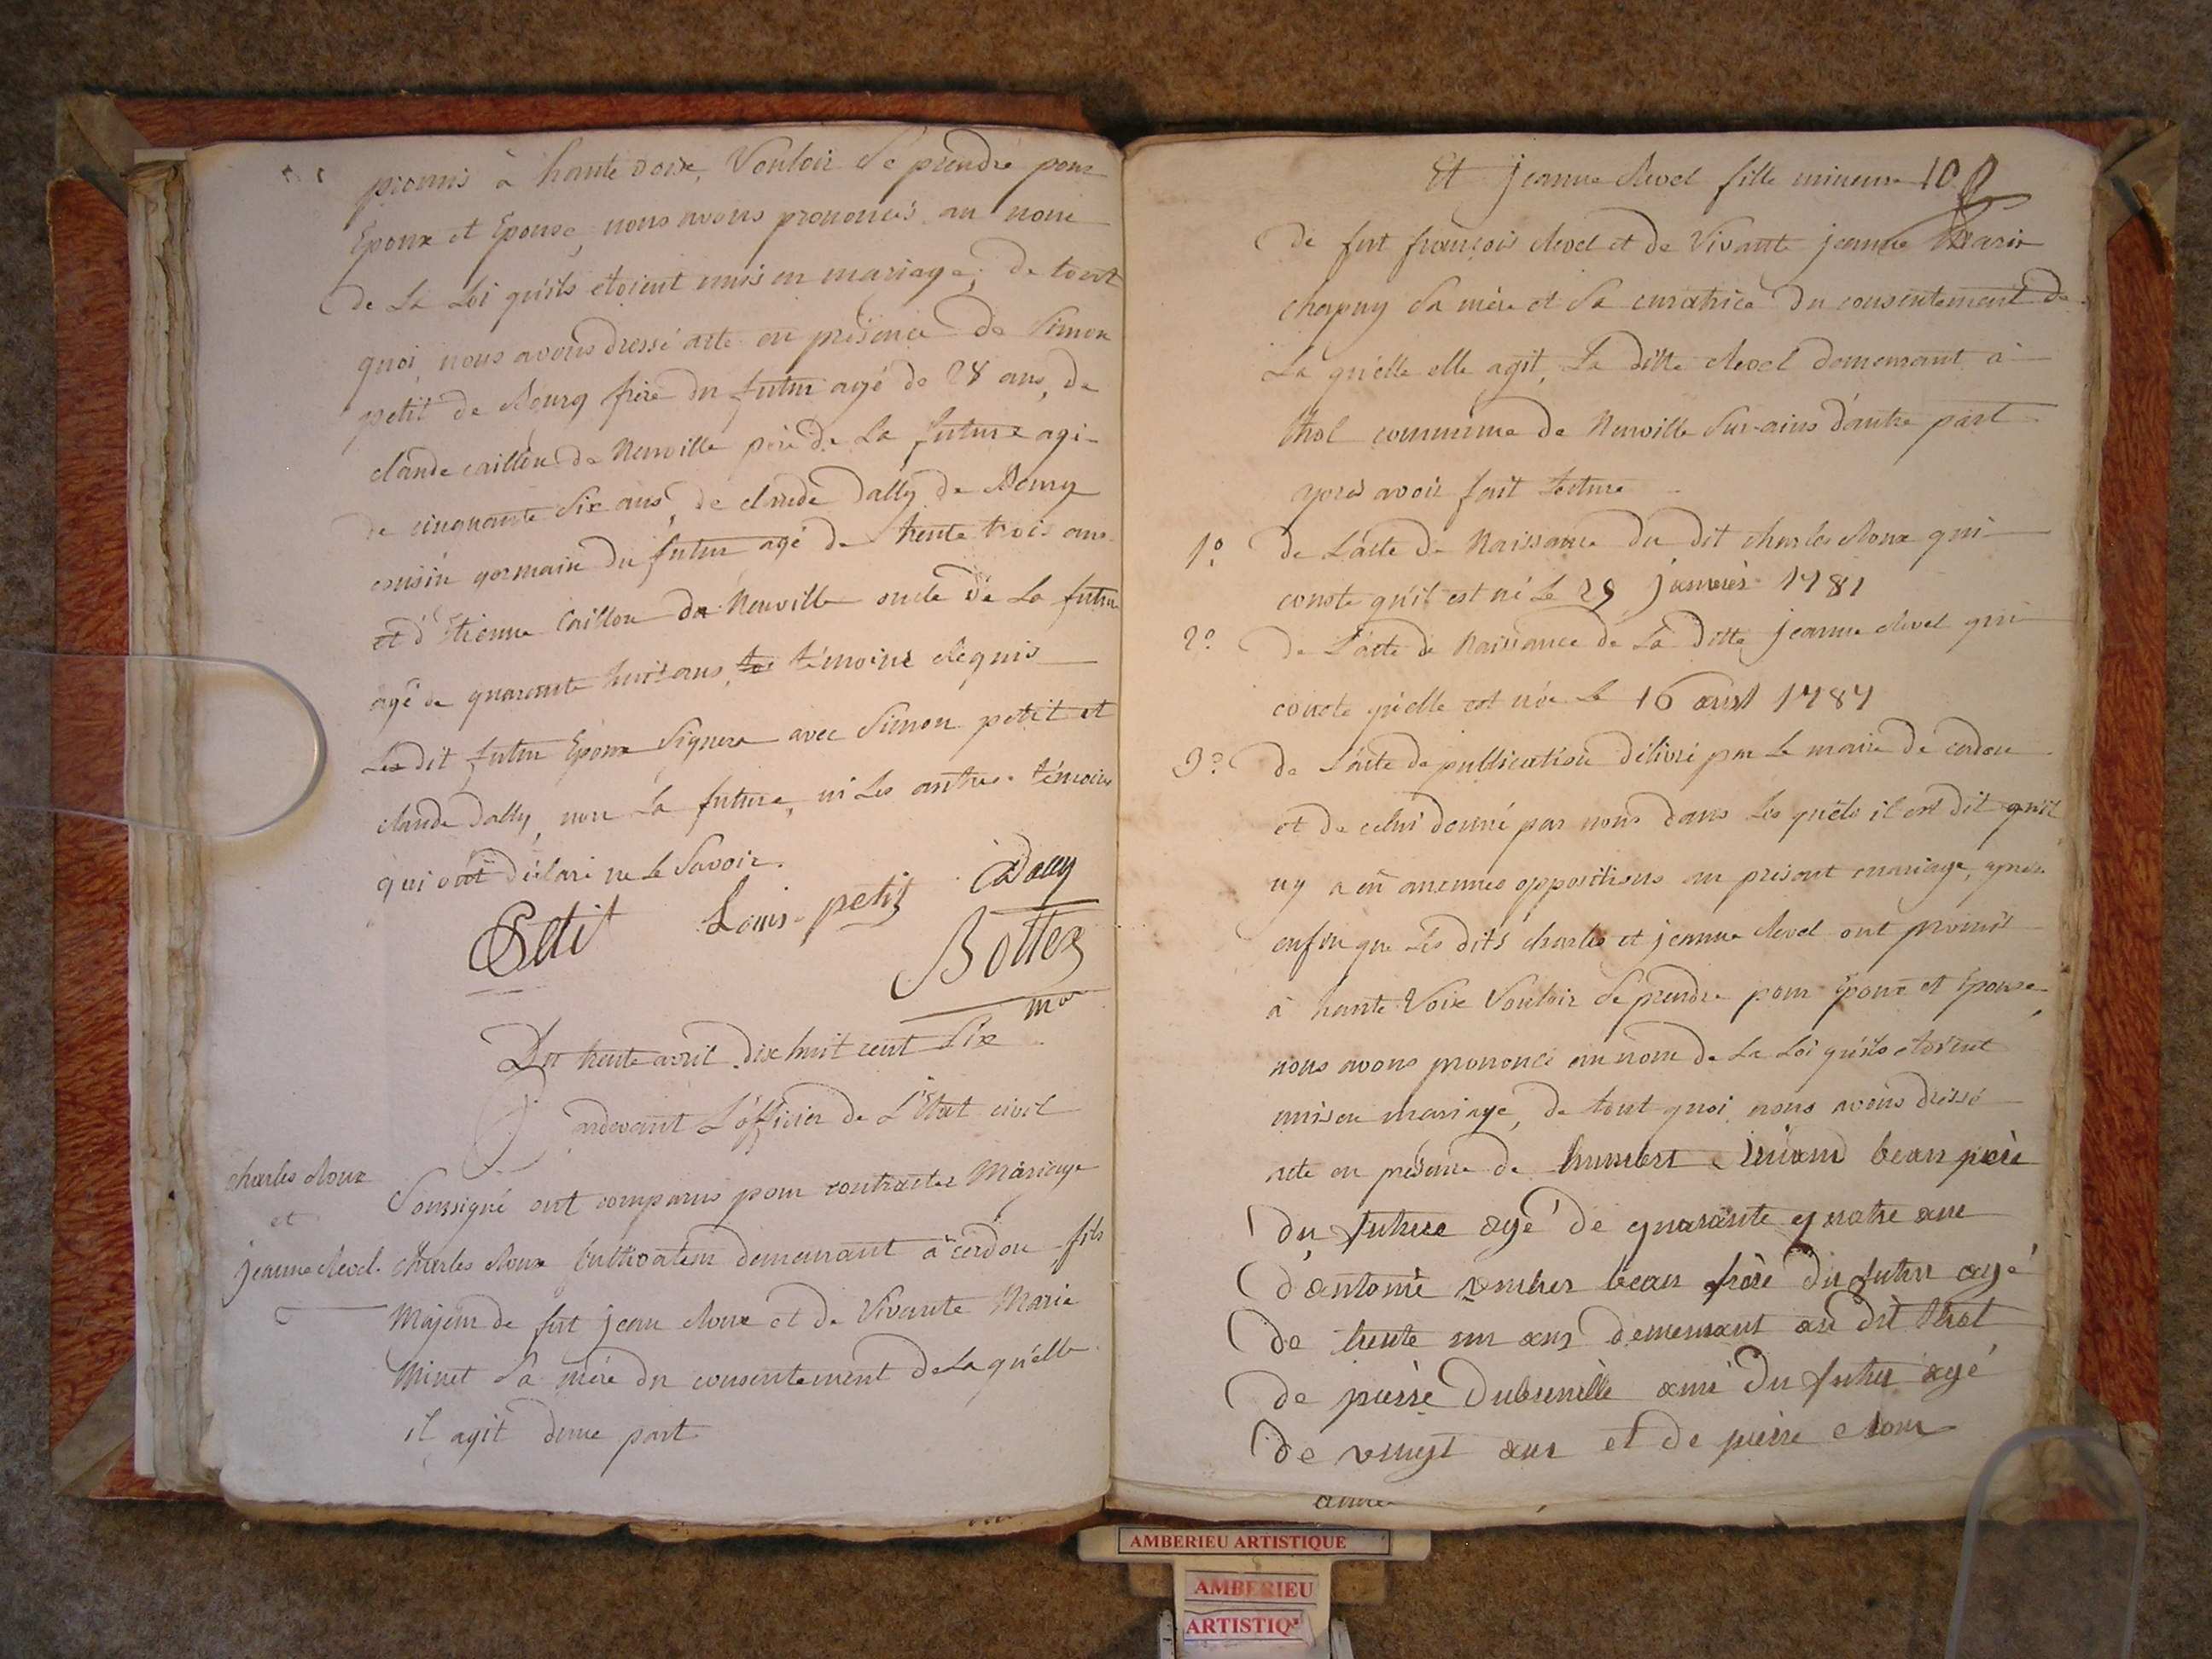 promis à haute voix, Vouloir Se prendre pour
Epoux et Epouse, nous avons prononcés au nom
de La Loi qu'ils etoient unis en mariage, de tout
quoi nous avons dressé acte en présence de Simon
petit de Bourg frère du futur agé de 28 ans, de
claude caillon de Neuville père de La future agé
de cinquante Six ans, de claude dally de Bourg
cousin germain du futur agé de trente trois ans
et d'Etienne Caillon de Neuville oncle de La future
agé de quarante huit ans, témoins réquis
Le dit futur Epoux Signera avec Simon petit et
claude dally, non La future, ni Les autres témoins
qui ont déclaré ne le Savoir.
Petit Louis petit CDally
Bottex
mre
Du trente avril dix huit cent Six
Pardevant L'officier de L'Etat civil
charles Roux
et
jeanne Revel.
Soussigné ont comparus pour contracter Mariage
charles Roux Cultivateur demeurant à cerdon fils
Majeur de fut jean Roux et de Vivante Marie
Minet Sa mère du consentement de Laquelle
il agit d'une part
Et jeanne Revel fille mineure 10
de fut françois Revel et de Vivante jeanne Marie
chapuy Sa mère et Sa curatrice du consentement de
La quelle elle agit, La ditte Revel demeurant à
thol commune de Neuville Sur-ains d'autre part
après avoir fait Lecture
1.o de L'acte de Naissance du dit charles Roux qui
conste qu'il est né Le 29 janvier 1781
2.o de L'acte de Naissance de La ditte jeanne Revel qui
conste qu'elle est née Le 16 aoust 1787
3.o de L'acte de publication délivré par Le maire de cerdon
et de celui donné par nous dans Les quels il est dit qu'il
ny a eü aucunes oppositions au présent mariage, après
enfin que Les dits charles et jeanne Revel ont promis
à haute Voix Vouloir Se prendre pour Epoux et Epouse,
nous avons prononcé au nom de La Loi qu'ils etoient
unis en mariage, de tout quoi nous avons dressé
acte en présence de humbert beau père
du future agé de quarante quatre ans
d'antoine beau frère du futur agé
de trente un ans demeurant au dit thol
de pierre Dubreuille ami du futur agé
de vingt ans et de pierre Roux
AMBERIEU ARTISTIQUE
AMBERIEU
ARTISTIQ